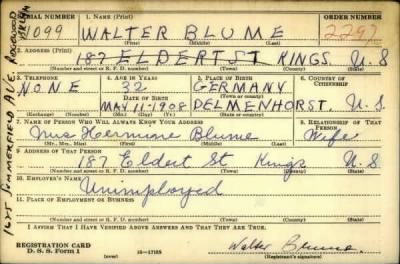 SERIAL NUMBER 1. NAME (Print) ORDER NUMBER
1099 WALTER BLUME 2297
(First) (Middle) (Last)
2. ADDRESS (Print)
187 ELDERT ST KINGS. U.S
(Number and street or R. F. D. number) (Town) (County) (State)
3. TELEPHONE 4. AGE IN YEARS 5. PLACE OF BIRTH 6. COUNTRY OF CITIZENSHIP
NONE 32 GERMANY
DATE OF BIRTH
MAY 11-1908 DELMENHORST. U.S
7. NAME OF PERSON WHO WILL ALWAYS KNOW YOUR ADDRESS 8. RELATIONSHIP OF THAT PERSON
Mrs Hermine Blume Wife
(Mr., Mrs., Miss) (First) (Middle) (Last)
9. ADDRESS OF THAT PERSON
187 Eldert St Kings U.S
(Number and street or R. F. D. number) (Town) (County) (State)
10. EMPLOYER'S NAME
Unimployed
11. PLACE OF EMPLOYMENT OR BUSINESS
(Number and street or R. F. D. number) (Town) (County) (State)
I AFFIRM THAT I HAVE VERIFIED ABOVE ANSWERS AND THAT THEY ARE TRUE.
REGISTRATION CARD
D. S. S. Form 1 (over) Walter Blume
1675 SUMMERFIELD AVE. RIDGEWOOD